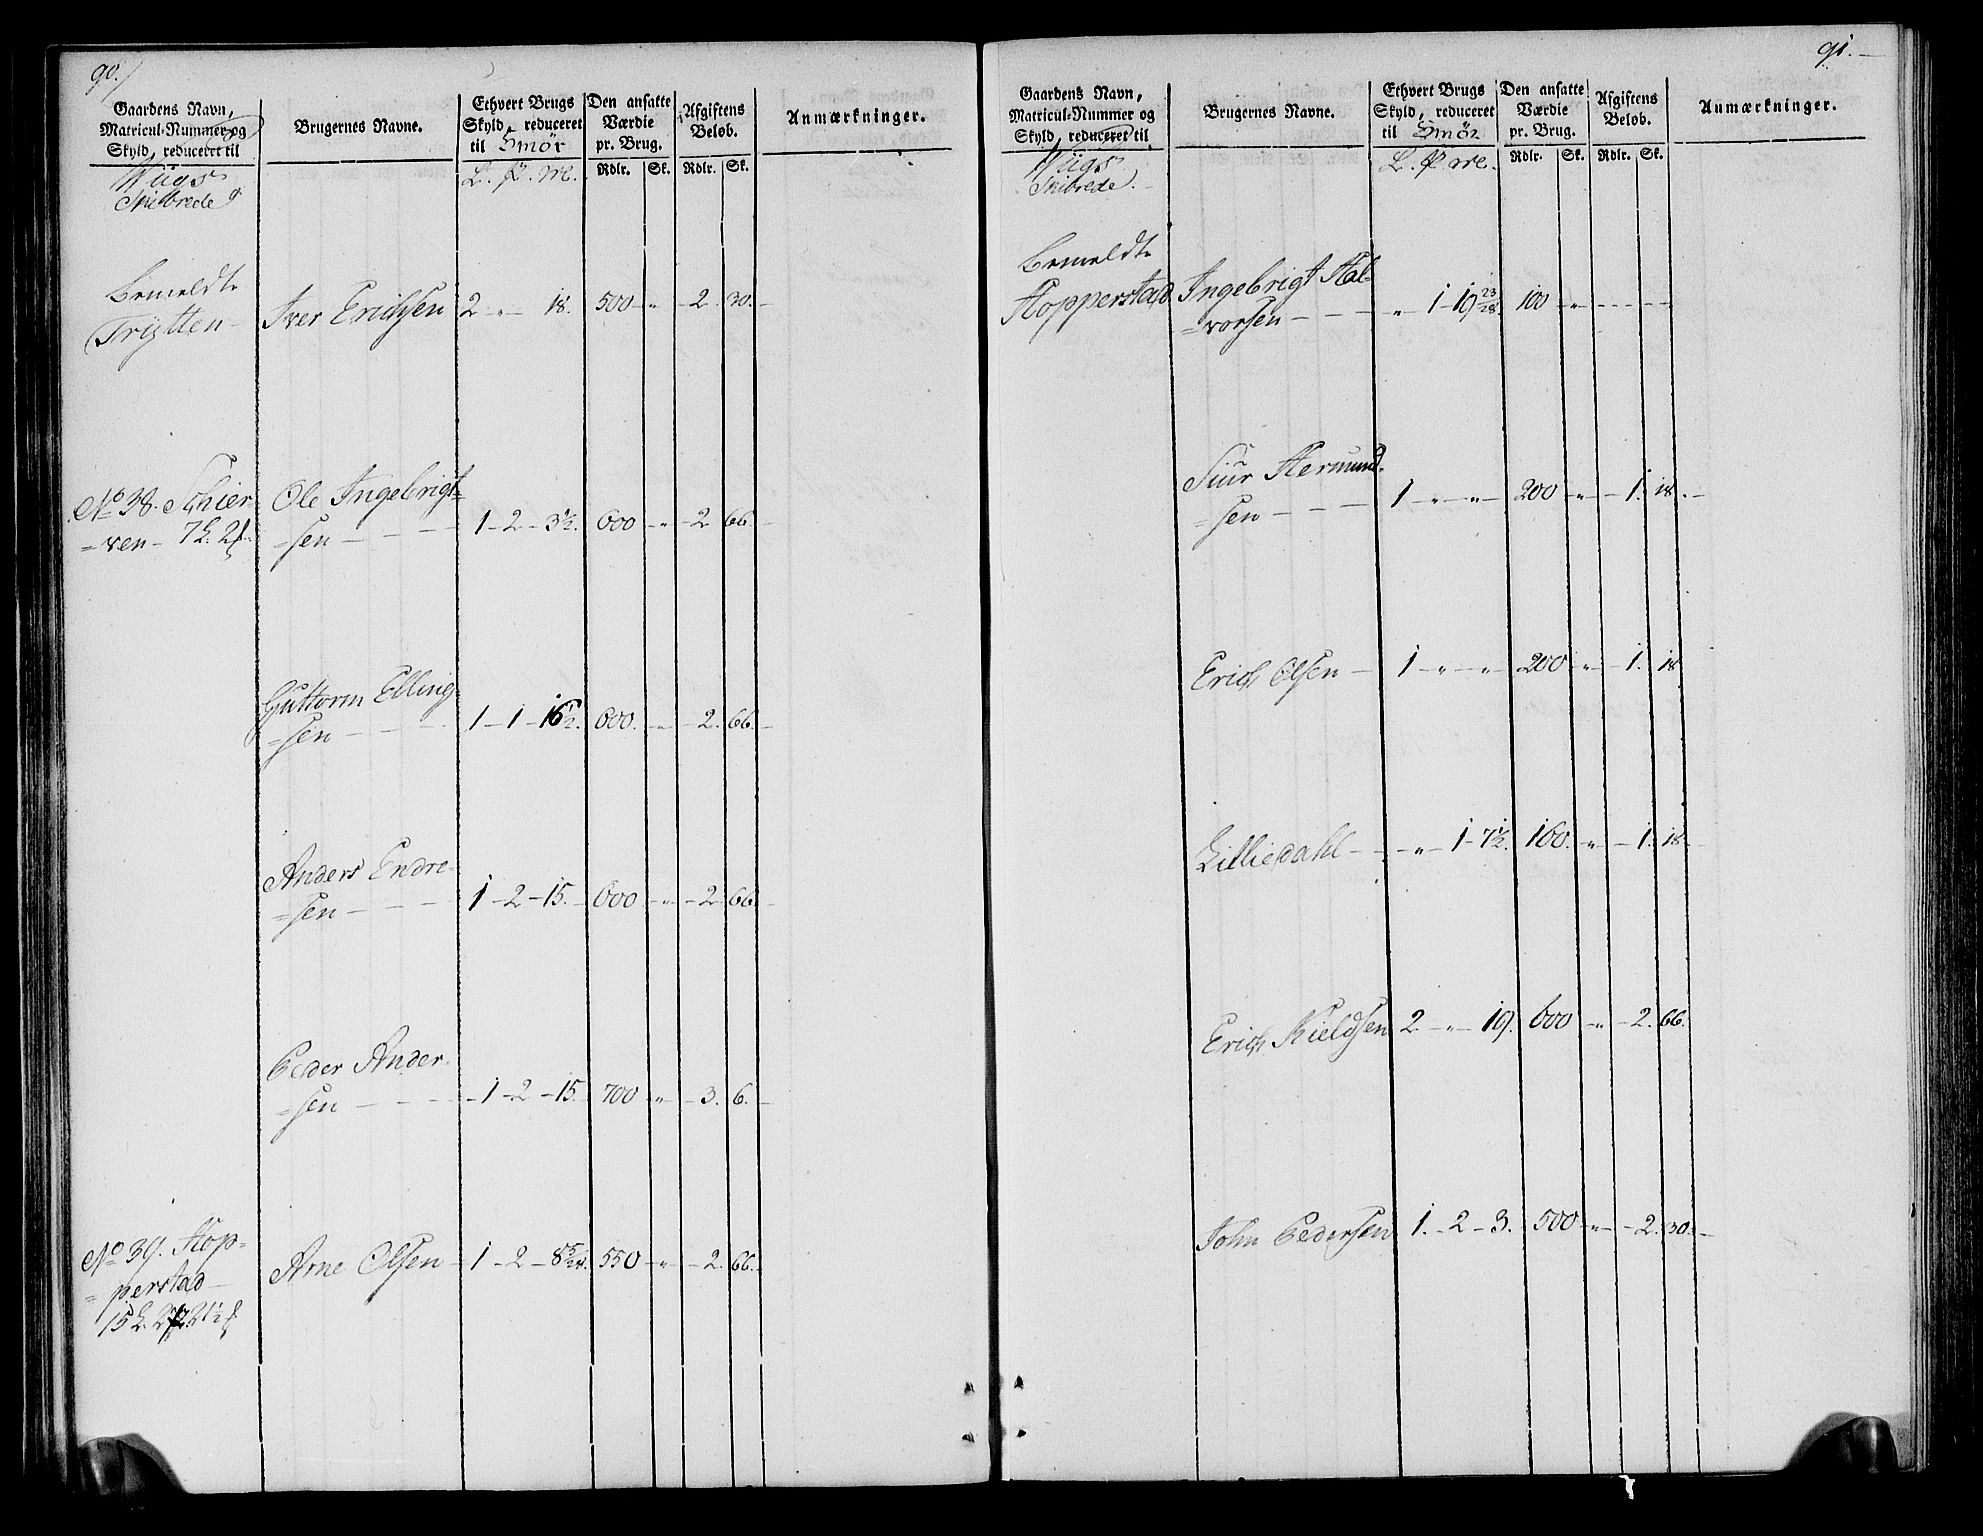 90.
Gaardens Navn, Matricul-Nummer og Skyld, reduceret til
Brugernes Navne.
Ethvert Brugs Skyld, reduceret til Smör
Den ansatte Værdie pr. Brug.
Afgiftens Beløb.
Anmærkninger.
Wiigs Skibrede
L. P. Mk.
Rdlr. Sk. Rdlr. Sk.
Bemeldte
Trijtten - Iver Erichsen 2 - „ - 18. 500 - „ - 2. 30. -
No 38. Schier- Ole Ingebrigt-
=ven - 7 L. 2 =sen - - - 1 - 2 - 3½. 600 - „ - 2. 66. -
Guttorm Elling-
=sen - - - 1 - 1 - 16½. 600. - „ - 2. 66. -
Anders Endre-
=sen - - - 1 - 2 - 15. - 600 - „ - 2. 66. -
Peder Ander-
=sen - - - 1 - 2 - 15. 700 - „ - 3. 6. -
No 39. Hop-
=perstad - Arne Olsen - 1 - 2 - 8 5/28. 550 - „ - 2. 66. -
15 L. 2
91. -
Gaardens Navn, Matricul-Nummer og Skyld, reduceret til
Brugernes Navne.
Ethvert Brugs Skyld, reduceret til Smör
Den ansatte Værdie pr. Brug.
Afgiftens Beløb.
Anmærkninger.
Wiigs Skibrede. -
L. P. Mk.
Rdlr. Sk. Rdlr. Sk.
Bemeldte
Hopperstad Ingebrigt Hal-
=vorsen - - - „ 1 - 19 23/28. 100 - „ - - - -
Siur Hermund-
=sen - - - 1 - „ - „ - 200 - „ - 1. 18. -
Erich Olsen - 1 - „ - „ - 200 - „ - 1. 18
Lilliedahl - - „ - 1 - 7½. 160. - „ - 1. 18. -
Erich Kieldsen 2 - „ - 19. 600 - „ - 2. 66.
John Pedersen 1. - 2 - 3. 500 - „ - 2. 30. -